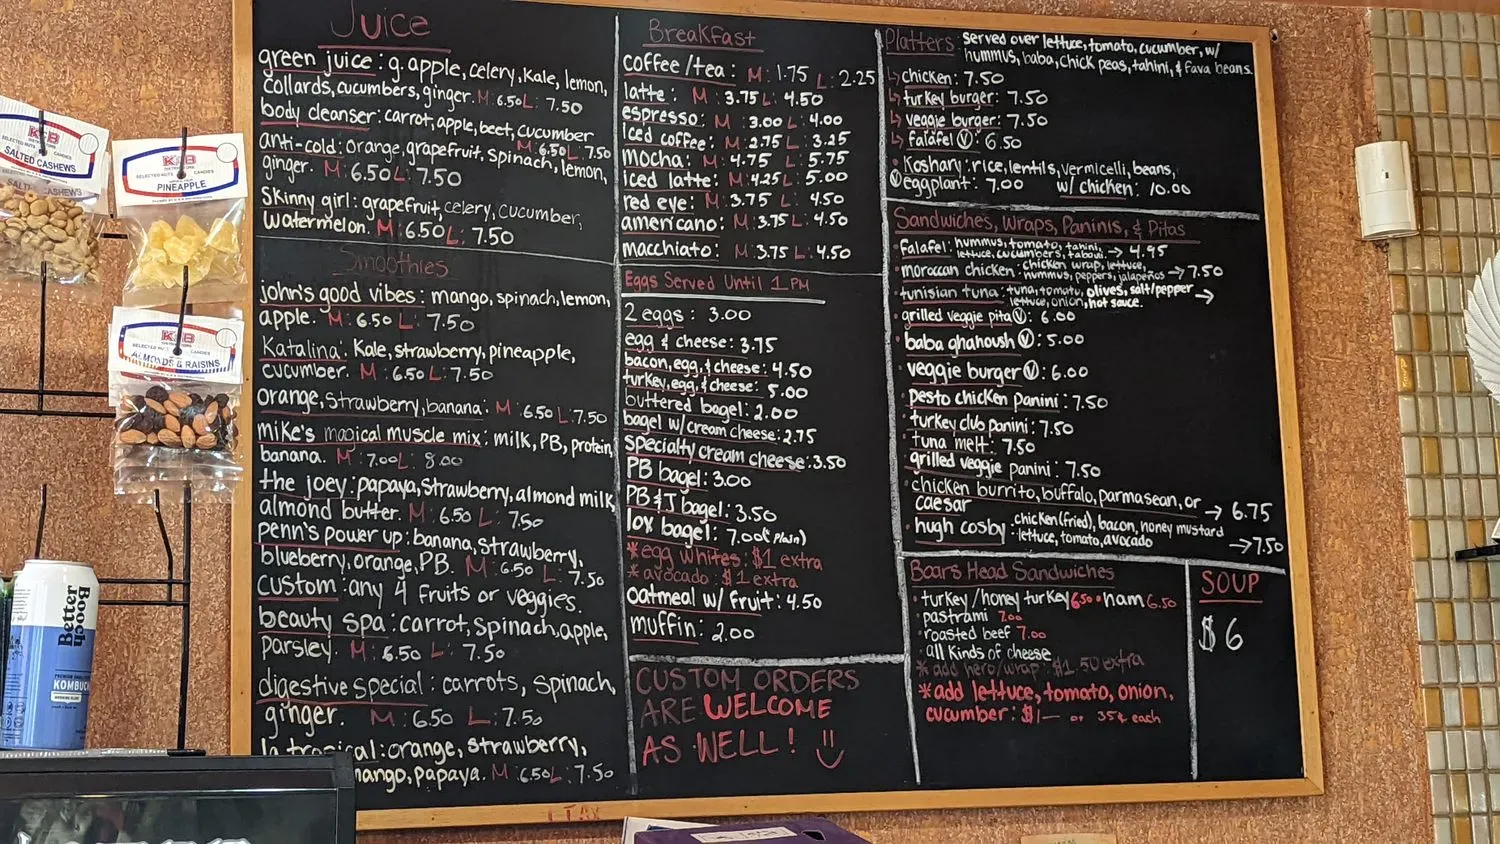 Juice
green juice: g. apple, celery, Kale, lemon,
collards, cucumbers, ginger. M: 6.50 L: 7.50
body cleanser: carrot, apple, beet, cucumber
M: 6.50 L: 7.50
anti-cold: orange, grapefruit, spinach, lemon,
ginger. M: 6.50 L: 7.50
Skinny girl: grapefruit, celery, cucumber,
Watermelon. M: 6.50 L: 7.50
Smoothies
john's good vibes: mango, spinach, lemon,
apple. M: 6.50 L: 7.50
Katalina: Kale, strawberry, pineapple,
cucumber. M: 6.50 L: 7.50
orange, strawberry, banana: M: 6.50 L: 7.50
mike's magical muscle mix: milk, PB, protein,
banana. M: 7.00 L: 8.00
the joey: papaya, strawberry, almond milk,
almond butter. M: 6.50 L: 7.50
penn's power up: banana, strawberry,
blueberry, orange, PB. M: 6.50 L: 7.50
custom: any 4 fruits or veggies.
beauty spa: carrot, spinach, apple,
parsley. M: 6.50 L: 7.50
digestive special: carrots, spinach,
ginger. M: 6.50 L: 7.50
la tropical: orange, strawberry,
mango, papaya. M: 6.50 L: 7.50
Breakfast
coffee/tea: M: 1.75 L: 2.25
latte: M: 3.75 L: 4.50
espresso: M: 3.00 L: 4.00
iced coffee: M: 2.75 L: 3.25
mocha: M: 4.75 L: 5.75
iced latte: M: 4.25 L: 5.00
red eye: M: 3.75 L: 4.50
americano: M: 3.75 L: 4.50
macchiato: M: 3.75 L: 4.50
Eggs Served Until 1 PM
2 eggs: 3.00
egg & cheese: 3.75
bacon, egg, & cheese: 4.50
turkey, egg, & cheese: 5.00
buttered bagel: 2.00
bagel w/ cream cheese: 2.75
specialty cream cheese: 3.50
PB bagel: 3.00
PB & J bagel: 3.50
lox bagel: 7.00 (*plain)
*egg whites: $1 extra
*avocado: $1 extra
oatmeal w/ fruit: 4.50
muffin: 2.00
CUSTOM ORDERS
ARE WELCOME
AS WELL!
Platters: served over lettuce, tomato, cucumber, w/
hummus, baba, chick peas, tahini, & fava beans.
chicken: 7.50
turkey burger: 7.50
veggie burger: 7.50
falafel V: 6.50
Koshary: rice, lentils, vermicelli, beans,
V eggplant: 7.00 w/ chicken: 10.00
Sandwiches, Wraps, Paninis, & Pitas
falafel: hummus, tomato, tahini,
lettuce, cucumbers, tabouli. → 4.95
moroccan chicken: chicken wrap, lettuce,
hummus, peppers, jalapeños → 7.50
tunisian tuna: tuna, tomato, olives, salt/pepper →
lettuce, onion, hot sauce.
grilled veggie pita V: 6.00
baba ghahoush V: 5.00
veggie burger V: 6.00
pesto chicken panini: 7.50
turkey club panini: 7.50
tuna melt: 7.50
grilled veggie panini: 7.50
chicken burrito, buffalo, parmasean, or
caesar → 6.75
hugh cosby: chicken (fried), bacon, honey mustard
lettuce, tomato, avocado → 7.50
Boars Head Sandwiches
turkey/honey turkey 6.50 • ham 6.50
pastrami 7.00
roasted beef 7.00
all kinds of cheese
*add hero/wrap: $1.50 extra
*add lettuce, tomato, onion,
cucumber: $1— or 35¢ each
SOUP
$6
+ TAX
K&B
SELECTED NUTS & CANDIES
SALTED CASHEWS
K&B
SELECTED NUTS & CANDIES
PINEAPPLE
K&B
SELECTED NUTS & CANDIES
ALMONDS & RAISINS
Better
Booch
KOMBUC